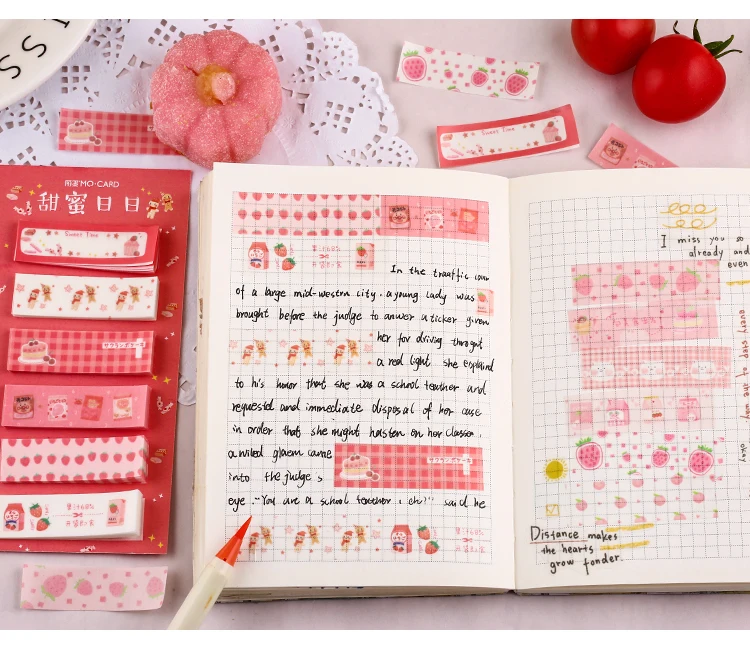 MO·CARD
甜蜜日日
Sweet Time
Sweet Time
In the traaffic cour
of a large mid-westrn city, a young lady was
brought before the judge to anwer a ticker given
her for driving throught
a red light she explaind
to his honor that she was a school teacher and
requestid and immediate disposal of her case
in order that she might hasten on her classes.
a wiled glaem came
into the judge s
eye "You are a school teacher, eh?" said he
I miss you so
already and
even
every step of the way
okay
Distance makes
the hearts
grow fonder.